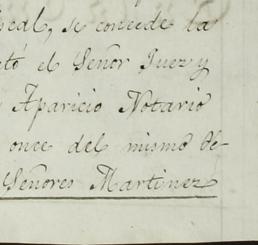 pcal, se concede la
tó el Señor Juez y
Aparicio Notario
once del mismo de-
Señores Martinez